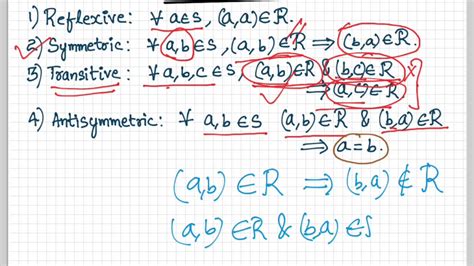 1) Reflexive: ∀ a∈S, (a,a)∈R.
2) Symmetric: ∀ a,b∈S, (a,b)∈R ⟹ (b,a)∈R.
3) Transitive: ∀ a,b,c∈S, (a,b)∈R & (b,c)∈R
⟹ (a,c)∈R
4) Antisymmetric: ∀ a,b∈S (a,b)∈R & (b,a)∈R
⟹ a=b.
(a,b)∈R ⟹ (b,a)∉R
(a,b)∈R & (b,a)∈S